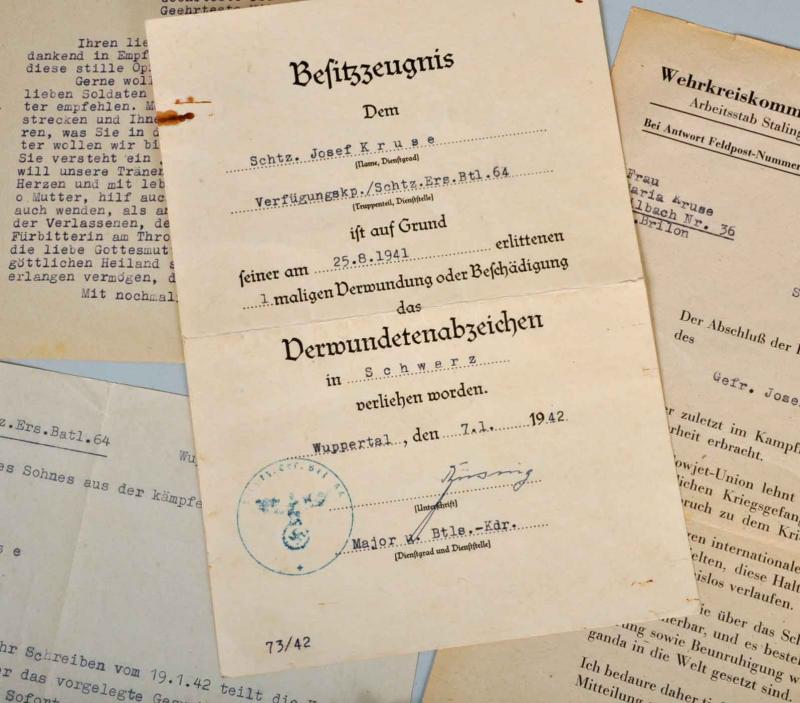 Ihren lie
dankend in Empf
diese stille Op
Gerne woll
lieben Soldaten
ter empfehlen. M
strecken und Ihne
ren, was Sie in d
ter wollen wir bi
Sie versteht ein
will unsere Tränen
Herzen und mit leb
o Mutter, hilf auc
auch wenden, als a
der Verlassenen, de
Fürbitterin am Thro
die liebe Gottesmut
göttlichen Heiland
erlangen vermögen, d
Mit nochmal
Besitzzeugnis
Dem
Schtz. Josef Kruse
(Name, Dienstgrad)
Verfügungskp./Schtz.Ers.Btl.64
(Truppenteil, Dienststelle)
ist auf Grund
seiner am 25.8.1941 erlittenen
1 maligen Verwundung oder Beschädigung
das
Verwundetenabzeichen
in Schwarz
verliehen worden.
Wuppertal, den 7.1. 1942
(Unterschrift)
Major u. Btls.-Kdr.
(Dienstgrad und Dienststelle)
73/42
Wehrkreiskomm
Arbeitsstab Staling
Bei Antwort Feldpost-Nummer
Frau
aria Kruse
lbach Nr. 36
.Brilon
S
Der Abschluß der
des
Gefr. Jose
r zuletzt im Kampf
rheit erbracht.
owjet-Union lehnt
lichen Kriegsgefan
ruch zu dem Kri
en internationale
elten, diese Halt
islos verlaufen.
ie über das Sch
erbar, und es beste
ung sowie Beunruhigung w
ganda in die Welt gesetzt sind.
Ich bedaure daher
Mitteilung
z.Ers.Batl.64
Wu
es Sohnes aus der kämpfe
s e
hr Schreiben vom 19.1.42 teilt die
r das vorgelegte Ges
Sofort